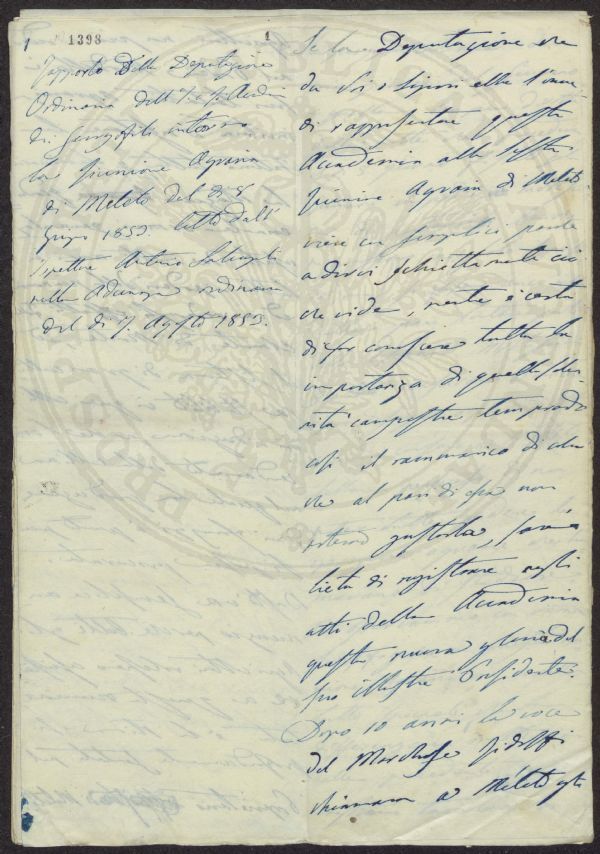 1
1398
1
Rapporto della Deputazione
Ordinaria dell'I. e R. Accad.
dei Georgofili intorno
la riunione Agraria
di Meleto del dì 8
Giugno 1853. letto dall'
Ispettore Antonio Salvagnoli
nella Adunanza ordinaria
del dì 7. Agosto 1853.
Se la Deputazione che
da Voi o Signori ebbe l'onore
di rappresentare questa
Accademia alla festa
riunione Agraria di Meleto
viene con semplici parole
a dirvi schiettamente ciò
che vide, e certa
di far conoscere tutta la
importanza di quella solen-
nità campestre temprando
così il rammarico di coloro
che al pari di essa non
poterono gustarla, sarà
lieta di registrare negli
atti della Accademia
questa nuova gloria del
suo illustre Presidente.
Dopo 10 anni, la voce
del Marchese Ridolfi
chiamava a Meleto gli